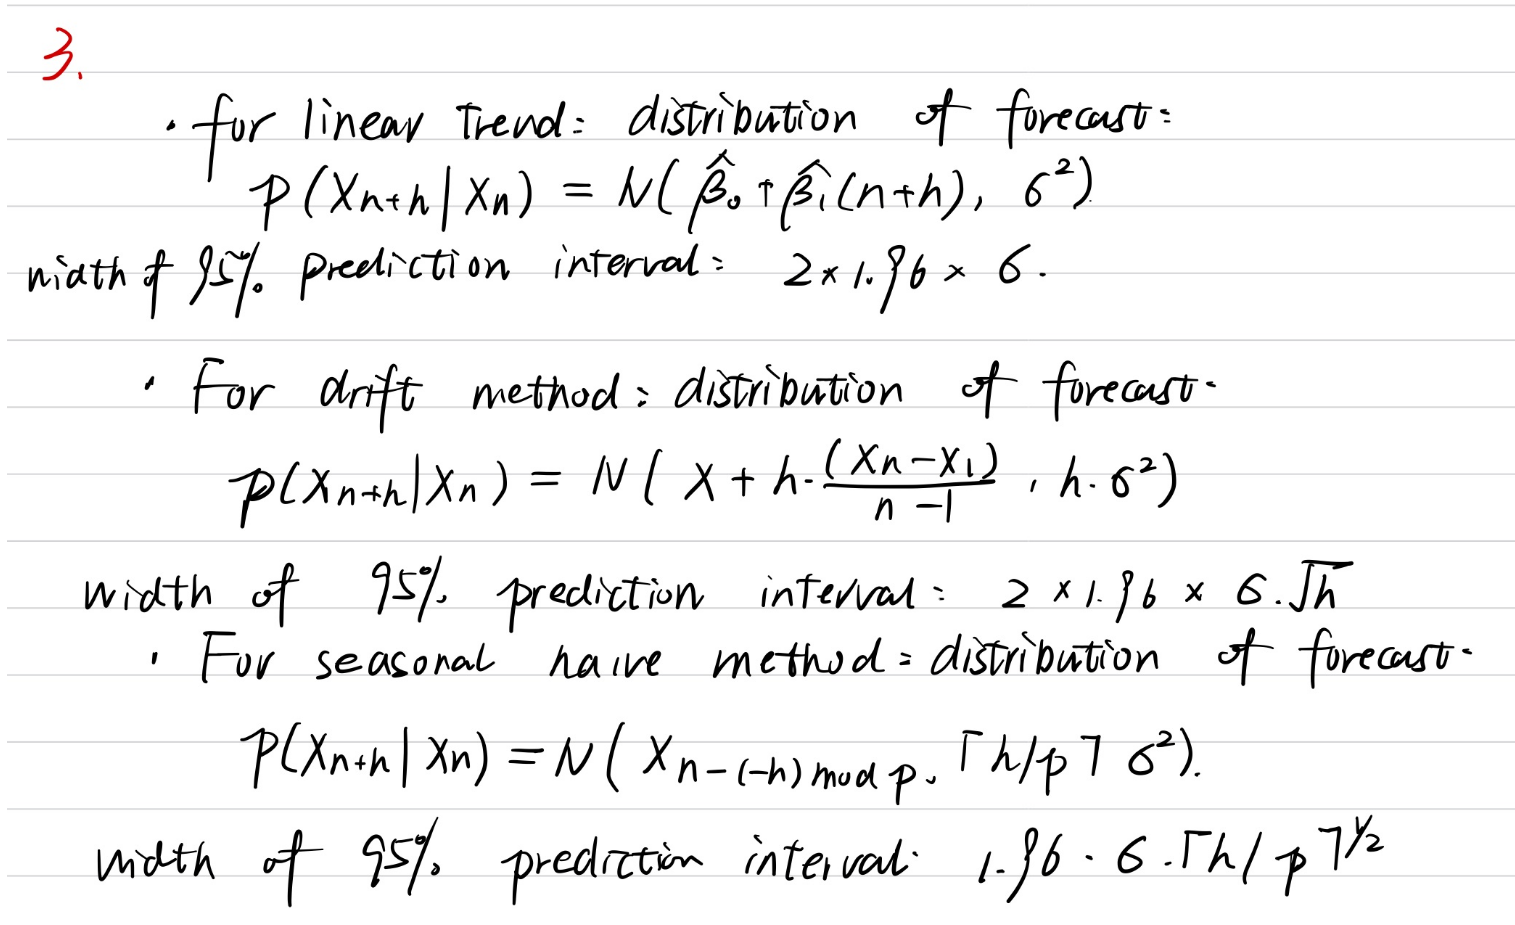 3.
· for linear Trend: distribution of forecast:
p(Xn+h|Xn) = N(β̂₀+β̂₁(n+h), σ²)
width of 95% prediction interval: 2×1.96×σ.
· For drift method: distribution of forecast.
p(Xn+h|Xn) = N(X+h·(Xn−X1)/(n−1), h·σ²)
width of 95% prediction interval: 2×1.96×σ·√h
· For seasonal naive method: distribution of forecast.
p(Xn+h|Xn) = N(Xn−(−h) mod p, ⌈h/p⌉σ²).
width of 95% prediction interval. 1.96·σ·⌈h/p⌉^1/2